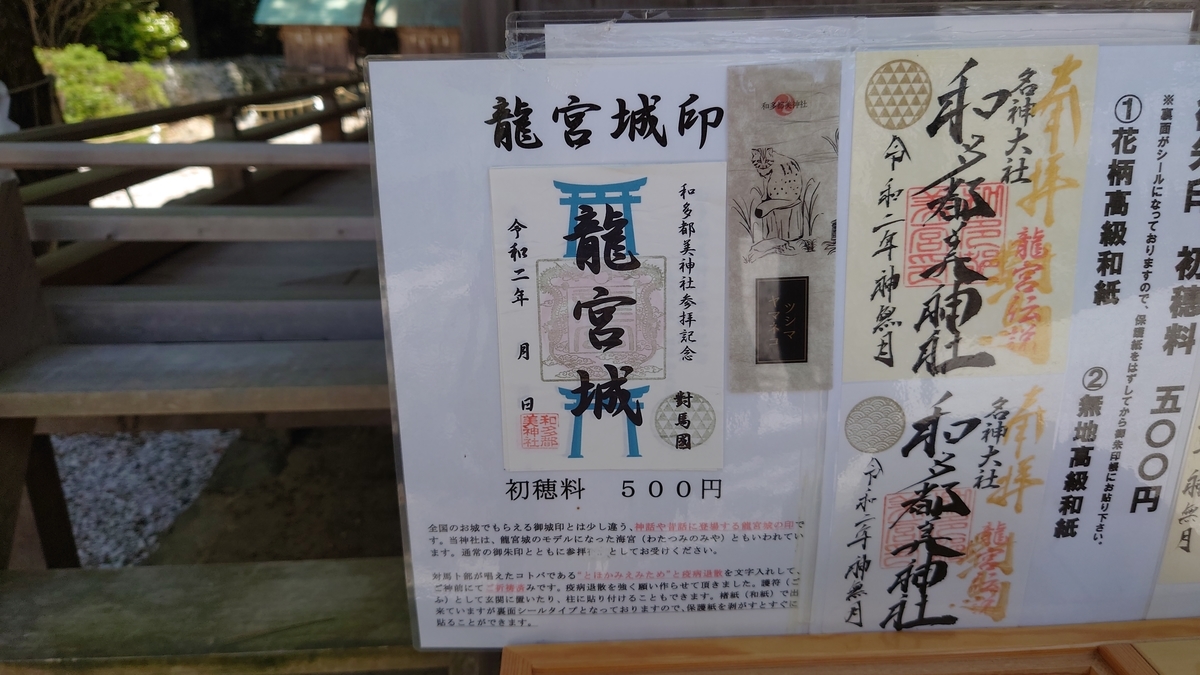 龍宮城印
和多都美神社参拝記念
龍宮城
令和二年 月 日
對馬國
和多都美神社
初穂料 500円
全国のお城でもらえる御城印とは少し違う、神話や昔話に登場する龍宮城の印で
す。当神社は、龍宮城のモデルになった海宮(わたつみのみや)ともいわれてい
ます。通常の御朱印とともに参拝 としてお受けください。
対馬卜部が唱えたコトバである"とほかみえみため"と疫病退散を文字入れして、
ご神前にてご祈祷済みです。疫病退散を強く願い作らせて頂きました。護符(ご
ふ)として玄関に置いたり、柱に貼り付けることもできます。楮紙(和紙)で出
来ていますが裏面シールタイプとなっておりますので、保護紙を剥がすとすぐに
貼ることができます。
和多都美神社
ツシマ
ヤマネコ
奉拝
名神大社
和多都美神社
龍宮伝説
令和二年神無月
奉拝
名神大社
和多都美神社
令和二年神無月
初穂料 五〇〇円
※裏面がシールになっておりますので、保護紙をはずしてから御朱印帳にお貼り下さい。
①花柄高級和紙
②無地高級和紙